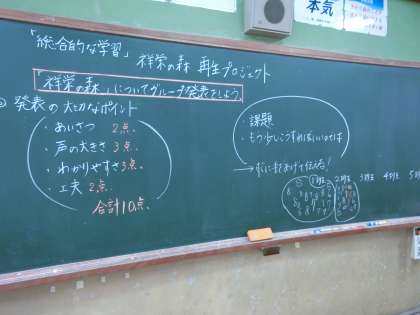 本気
「総合的な学習」 祥栄の森 再生プロジェクト
「祥栄の森」についてグループ発表をしよう
発表の大切なポイント
・あいさつ 2点.
・声の大きさ 3点.
・わかりやすさ 3点.
・工夫 2点.
合計10点.
課題
・もう少しこうすればいいのでは
1班 2班 3班 4班 5